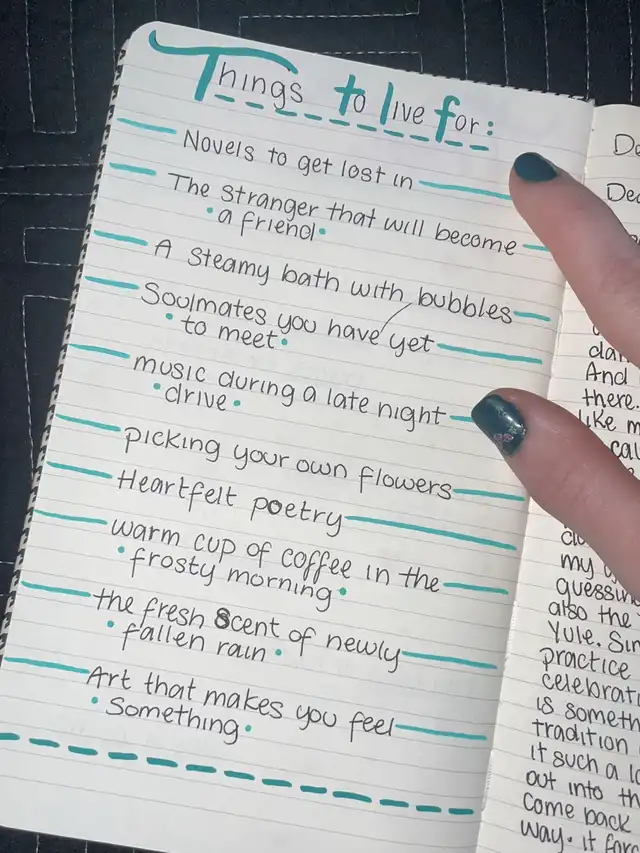 Things to live for:
Novels to get lost in
The stranger that will become
• a friend •
A steamy bath with bubbles
Soulmates you have yet
• to meet •
music during a late night
• drive •
picking your own flowers
Heartfelt poetry
warm cup of coffee in the
• frosty morning •
the fresh scent of newly
• fallen rain •
Art that makes you feel
• Something •
And
there.
like
my
guessing
also the
Yule.
practice
is
tradition
it such a
out into
come back
way. it